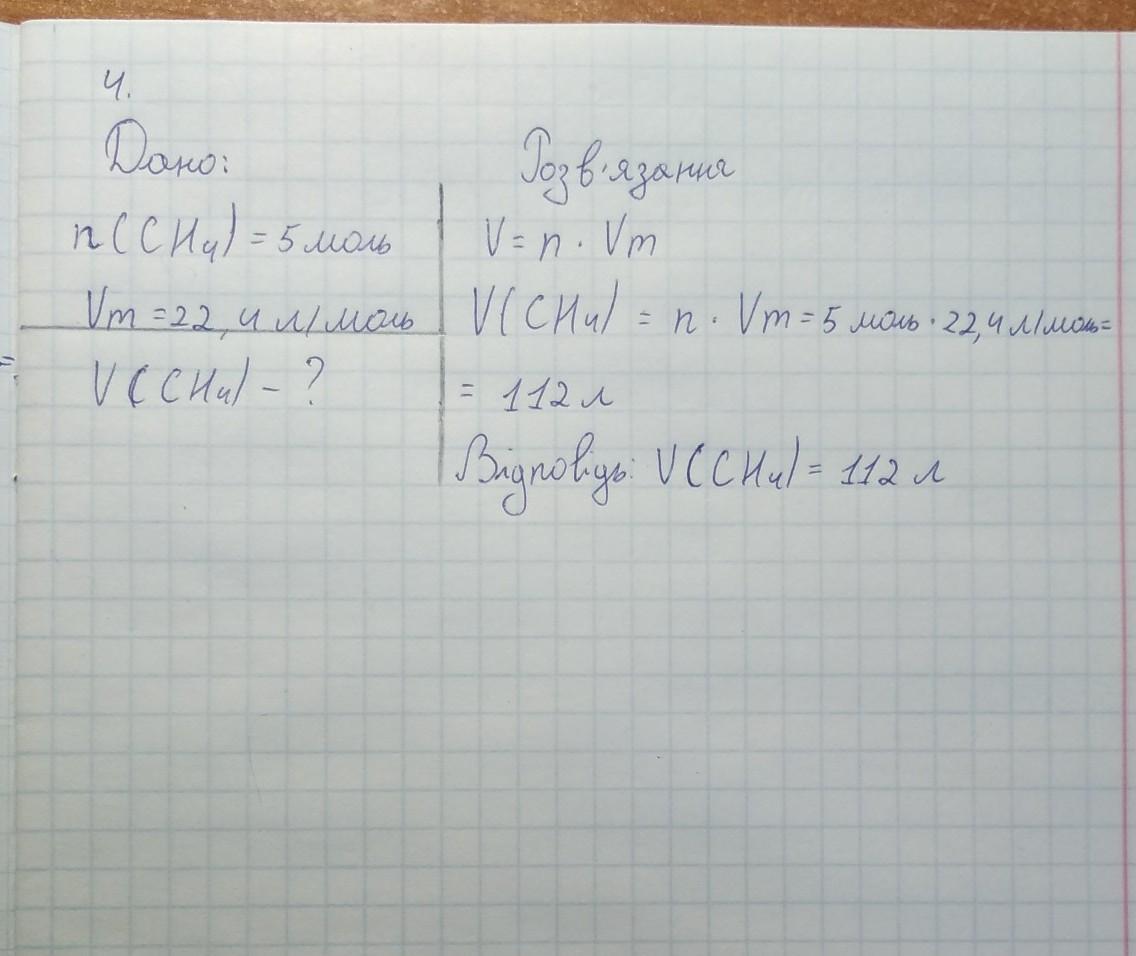 4.
Дано:
n(CH₄) = 5 моль
Vm = 22,4 л/моль
V(CH₄) - ?
Розв'язання
V = n · Vm
V(CH₄) = n · Vm = 5 моль · 22,4 л/моль =
= 112 л
Відповідь: V(CH₄) = 112 л
=